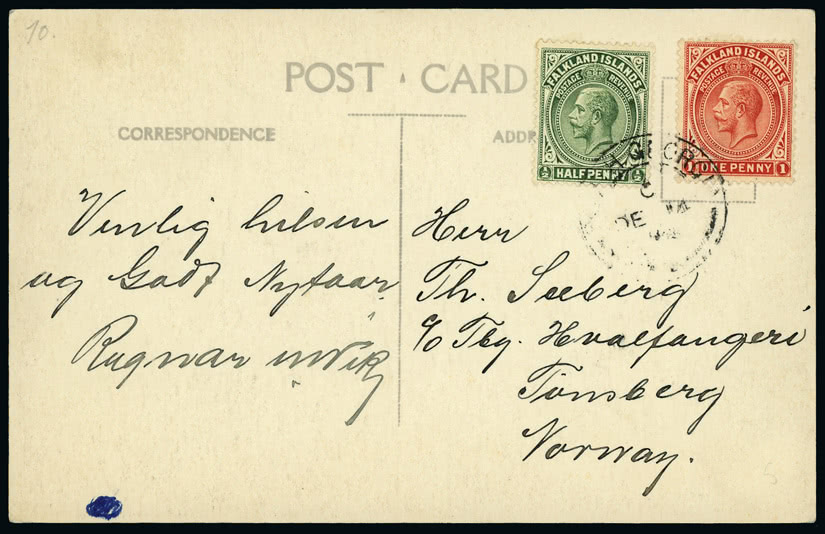 10.
POST CARD
CORRESPONDENCE
ADDR
FALKLAND ISLANDS
POSTAGE REVENUE
HALF PENNY ½
FALKLAND ISLANDS
POSTAGE REVENUE
1 ONE PENNY 1
DE
Venlig hilsen
og Godt Nytaar.
Ragnar
Herr
Th. Seeberg
c/o Tbg. Hvalfangeri
Tönsberg
Norway.